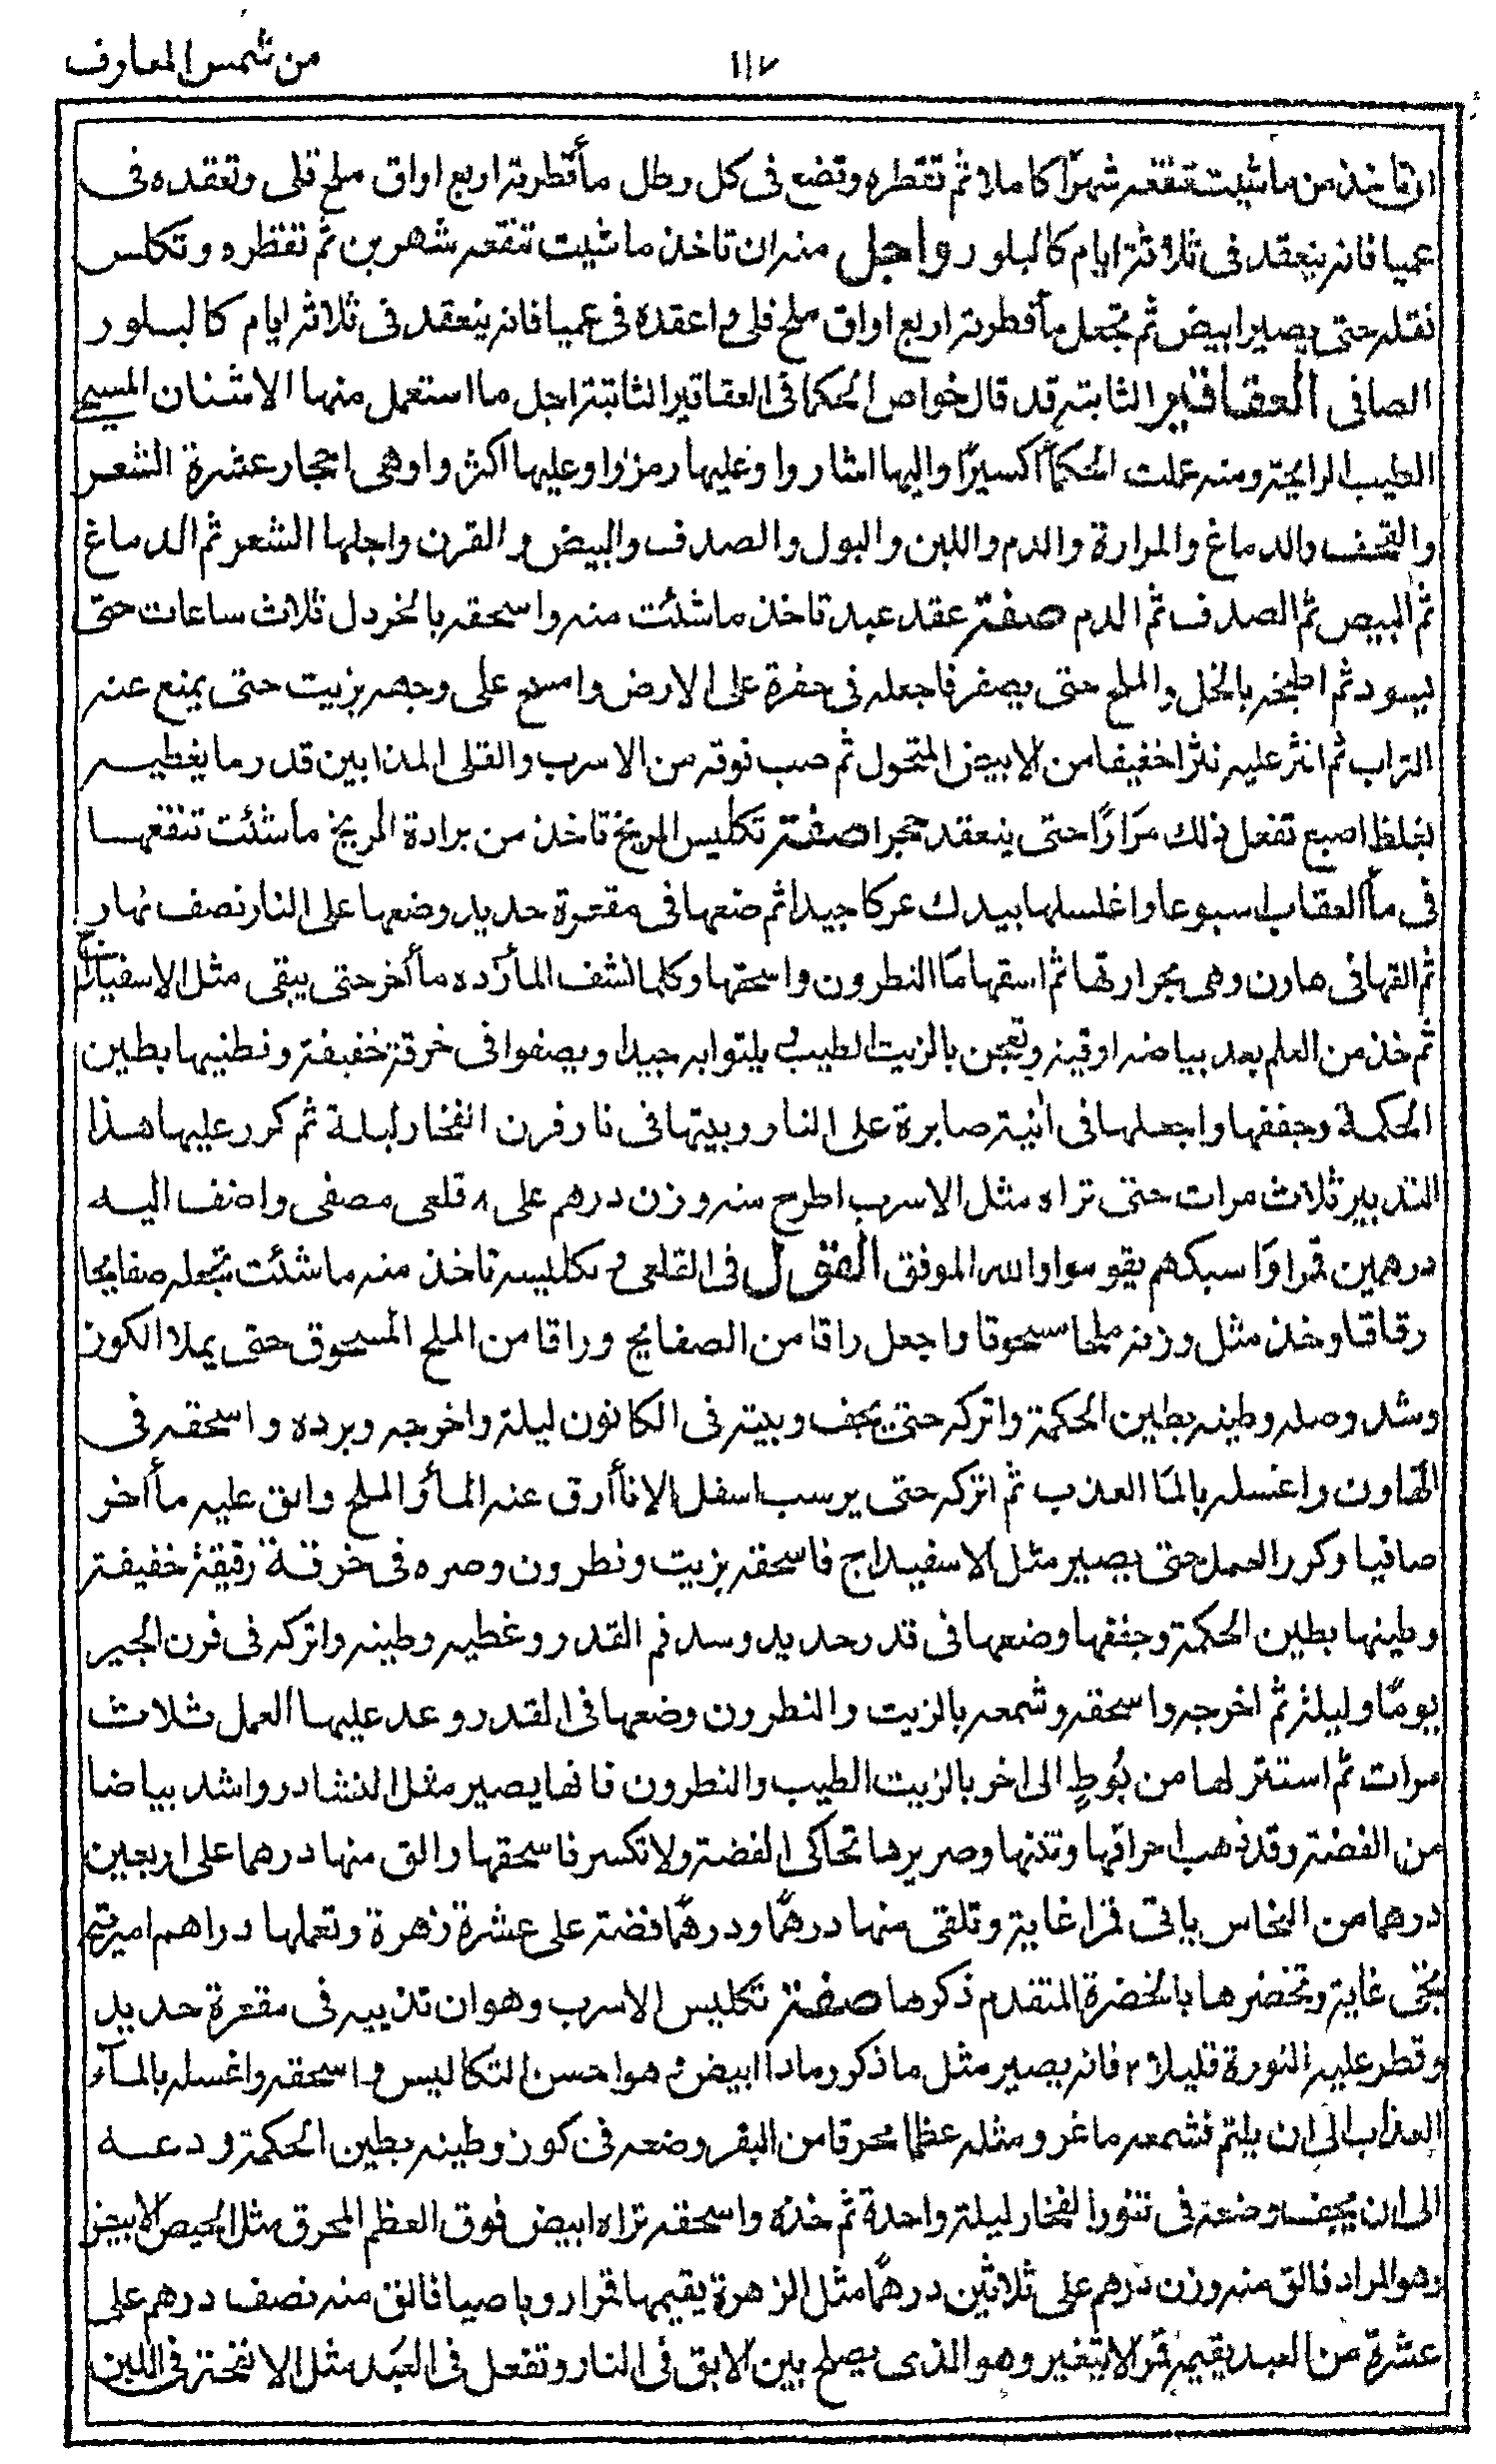 من شمس المعارف
١١٧
ان تاخذ من ما شيت تنقعه شهرا كاملا ثم تقطره وتضع فى كل رطل مأقطرته اربع اواق ملح قلى وتعقده فى
عميا فانه ينعقد فى ثلاثة ايام كالبلور واجل منه ان تاخذ ما شيت تنقعه شهرين ثم تقطره وتكلس
نقله حتى يصير ابيض ثم تجعل مأقطرته اربع اواق ملح قلى واعقده فى عميا فانه ينعقد فى ثلاثة ايام كالبلور
الصافى العقاقير الثابتة قد قال خواص الحكما فى العقاقير الثابتة اجل ما استعمل منها الاشنان المسيحى
الطيب الرايحة ومنه عملت الحكمأ اكسيرًا واليها اشاروا وعليها رمزوا وعليها اكثروا وهى احجار عشرة الشعر
والقحف والدماغ والمرارة والدم واللبن والبول والصدف والبيض والقرن واجلها الشعر ثم الدماغ
ثم البيض ثم الصدف ثم الدم صفة عقد عبد تاخذ ما شئت منه واسحقه بالخردل ثلاث ساعات حتى
يسود ثم اطبخه بالخل والملح حتى يصفر فاجعله فى حفرة على الارض وامسح على وجهه بزيت حتى يمنع عنه
التراب ثم انثر عليه نثرا خفيفا من الابيض المتحول ثم صب فوقه من الاسرب والقلى المذابين قدر ما يغطيه
بغلظ اصبع تفعل ذلك مرارًا حتى ينعقد حجرا صفة تكليس المريخ تاخذ من برادة المريخ ما شئت تنقعها
فى مأ العقاب اسبوعا واغسلها بيدك عركا جيدا ثم ضعها فى مقعرة حديد وضعها على النار نصف نهار
ثم القها فى هاون وهى بحرارتها ثم اسقها مأ النطرون واسحقها وكلما نشف المأ زده مأ اخر حتى يبقى مثل الاسفيداج
ثم خذ من العلم بعد بياضه اوقية وتعجن بالزيت الطيب يلتوا به جيدا ويصفوا فى خرقة خفيفة وتطنيها بطين
الحكمة وجففها واجعلها فى انية صابرة على النار وبيتها فى نار فرن الفخار ليلة ثم كرر عليها هذا
التدبير ثلاث مرات حتى تراه مثل الاسرب اطرح منه وزن درهم على ٨ قلعى مصفى واضف اليه
درهمين قمرا واسبكهم يقوموا والله الموفق القول فى القلعى وتكليسه تاخذ منه ما شئت تجعله صفايحا
رقاقا وخذ مثل وزنه ملحا مسحوقا واجعل راقا من الصفايح وراقا من الملح المسحوق حتى يملا الكوز
وشد وصله وطينه بطين الحكمة واتركه حتى يجف وبيته فى الكانون ليلة واخرجه وبرده واسحقه فى
الهاون واغسله بالمأ العذب ثم اتركه حتى يرسب اسفل الانأ ارق عنه المأ والملح والق عليه مأ اخر
صافيا وكرر العمل حتى يصير مثل الاسفيداج فاسحقه بزيت ونطرون وصره فى خرقة رقيقة خفيفة
وطينها بطين الحكمة وجففها وضعها فى قدر حديد وسد فم القدر وغطيه وطينه واتركه فى فرن الجير
يومًا وليلة ثم اخرجه واسحقه وشمعه بالزيت والنطرون وضعها فى القدر وعد عليها العمل ثلاث
مرات ثم استنزلها من بُوطٍ الى اخر بالزيت الطيب والنطرون فانها يصير مثل النشادر واشد بياضا
من الفضة وقد ذهب احراقها ونتنها وصريرها تحاكى الفضة ولا تكسر فاسحقها والق منها درهما على اربعين
درهما من النحاس ياتى قمرا غاية وتلقى منها درهمًا ودرهمًا فضة على عشرة زهرة وتعملها دراهم اميرية
تجى غاية وتخضرها بالخضرة المتقدم ذكرها صفة تكليس الاسرب وهو ان تذيبه فى مقعرة حديد
وقطر عليه النورة قليلا ٢ فانه يصير مثل ما ذكر رمادا ابيض وهو احسن التكاليس واسحقه واغسله بالمآء
العذاب الى ان يلتم فشمعه ماغر ومثله عظما محرقا من البقر وضعه فى كوز وطينه بطين الحكمة ودعه
الى ان يجف وضعه فى تنور الفخار ليلة واحدة ثم خذه واسحقه تراه ابيض فوق العظم المحرق مثل الجيص الابيض
وهو المراد فالق منه وزن درهم على ثلاثين درهمًا مثل الزهرة يقيمها قمرا روباصيا فالق منه نصف درهم على
عشرة من العبد يقيمه قمرًا لا يتغير وهو الذى يصلح بين الابق فى النار وتفعل فى العبد مثل الانفحة فى اللبن